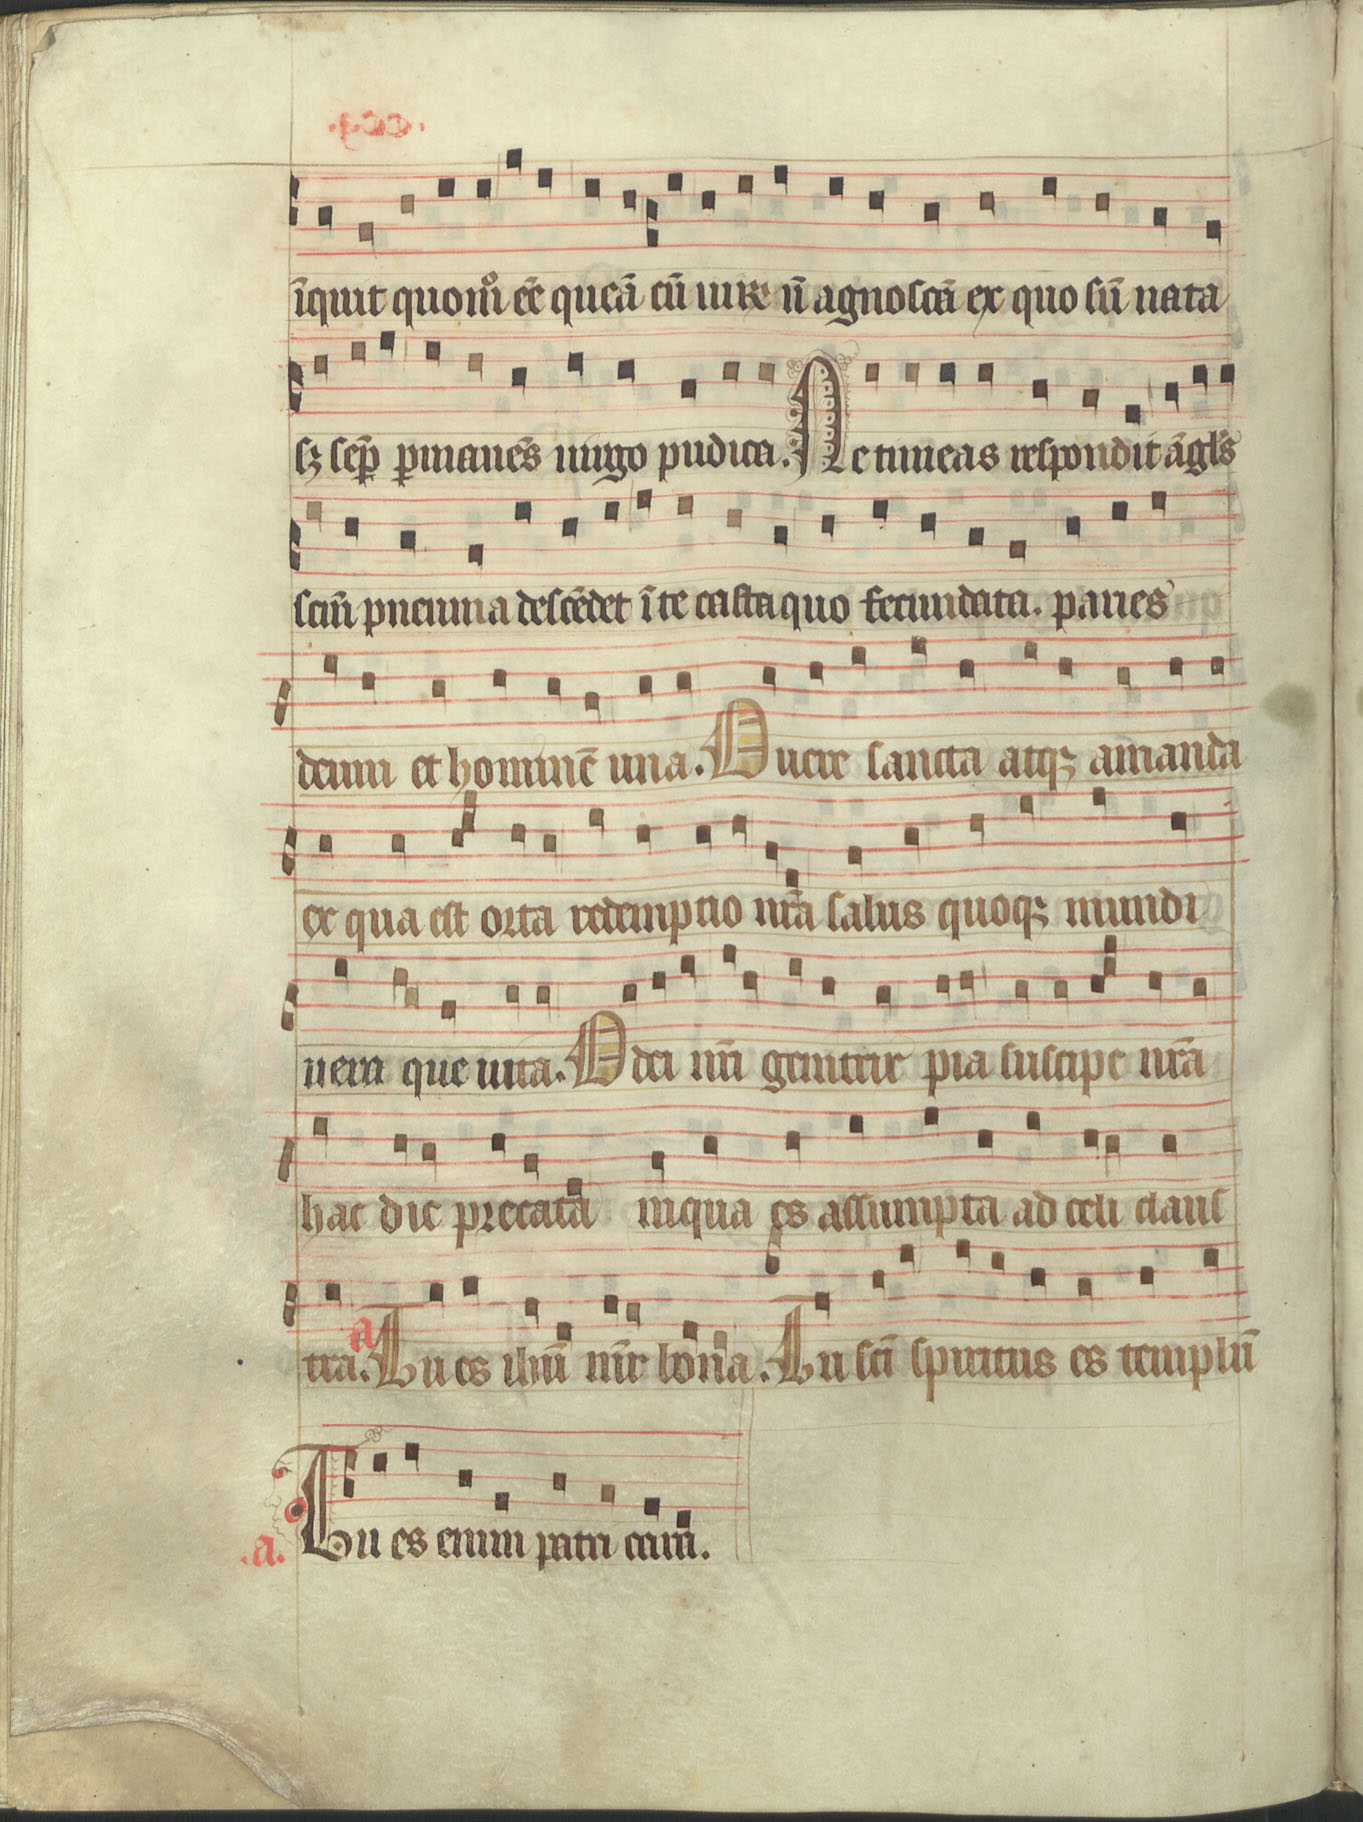 īquit quom̊ eē̄ queā cū uirū n̄ agnoscā ex quo sū nata
sꝫ semp̄ ꝑmanēs uirgo pudica. Ne timeas respondit āgl̄s
scm̄ pneuma descēdet ī te casta quo fecundata. paries
deum et hominē una. O uere sancta atqꝫ amanda
ex qua est orta redemptio nrā salus quoqꝫ mundi
uera que uita. O dei nr̄i genitrix pia suscipe nrā
hac die precata in qua es assumpta ad celi claus
tra. a Tu es ihū mr̄ bona. Tu scī spiritus es templū
.a. Tu es enim patri cara.